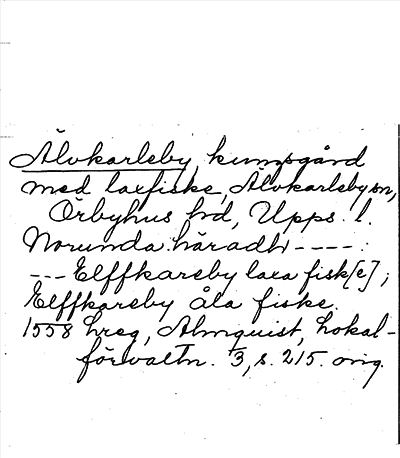 Älvkarleby, kungsgård
med laxfiske, Älvkarleby sn,
Örbyhus hd, Upps. l.
Norunda häradh ----:
--- Elffkareby laxa fisk[e];
Elffkareby åla fiske.
1558 hreg, Almquist, Lokal-
förvaltn. 3, s. 215. orig.